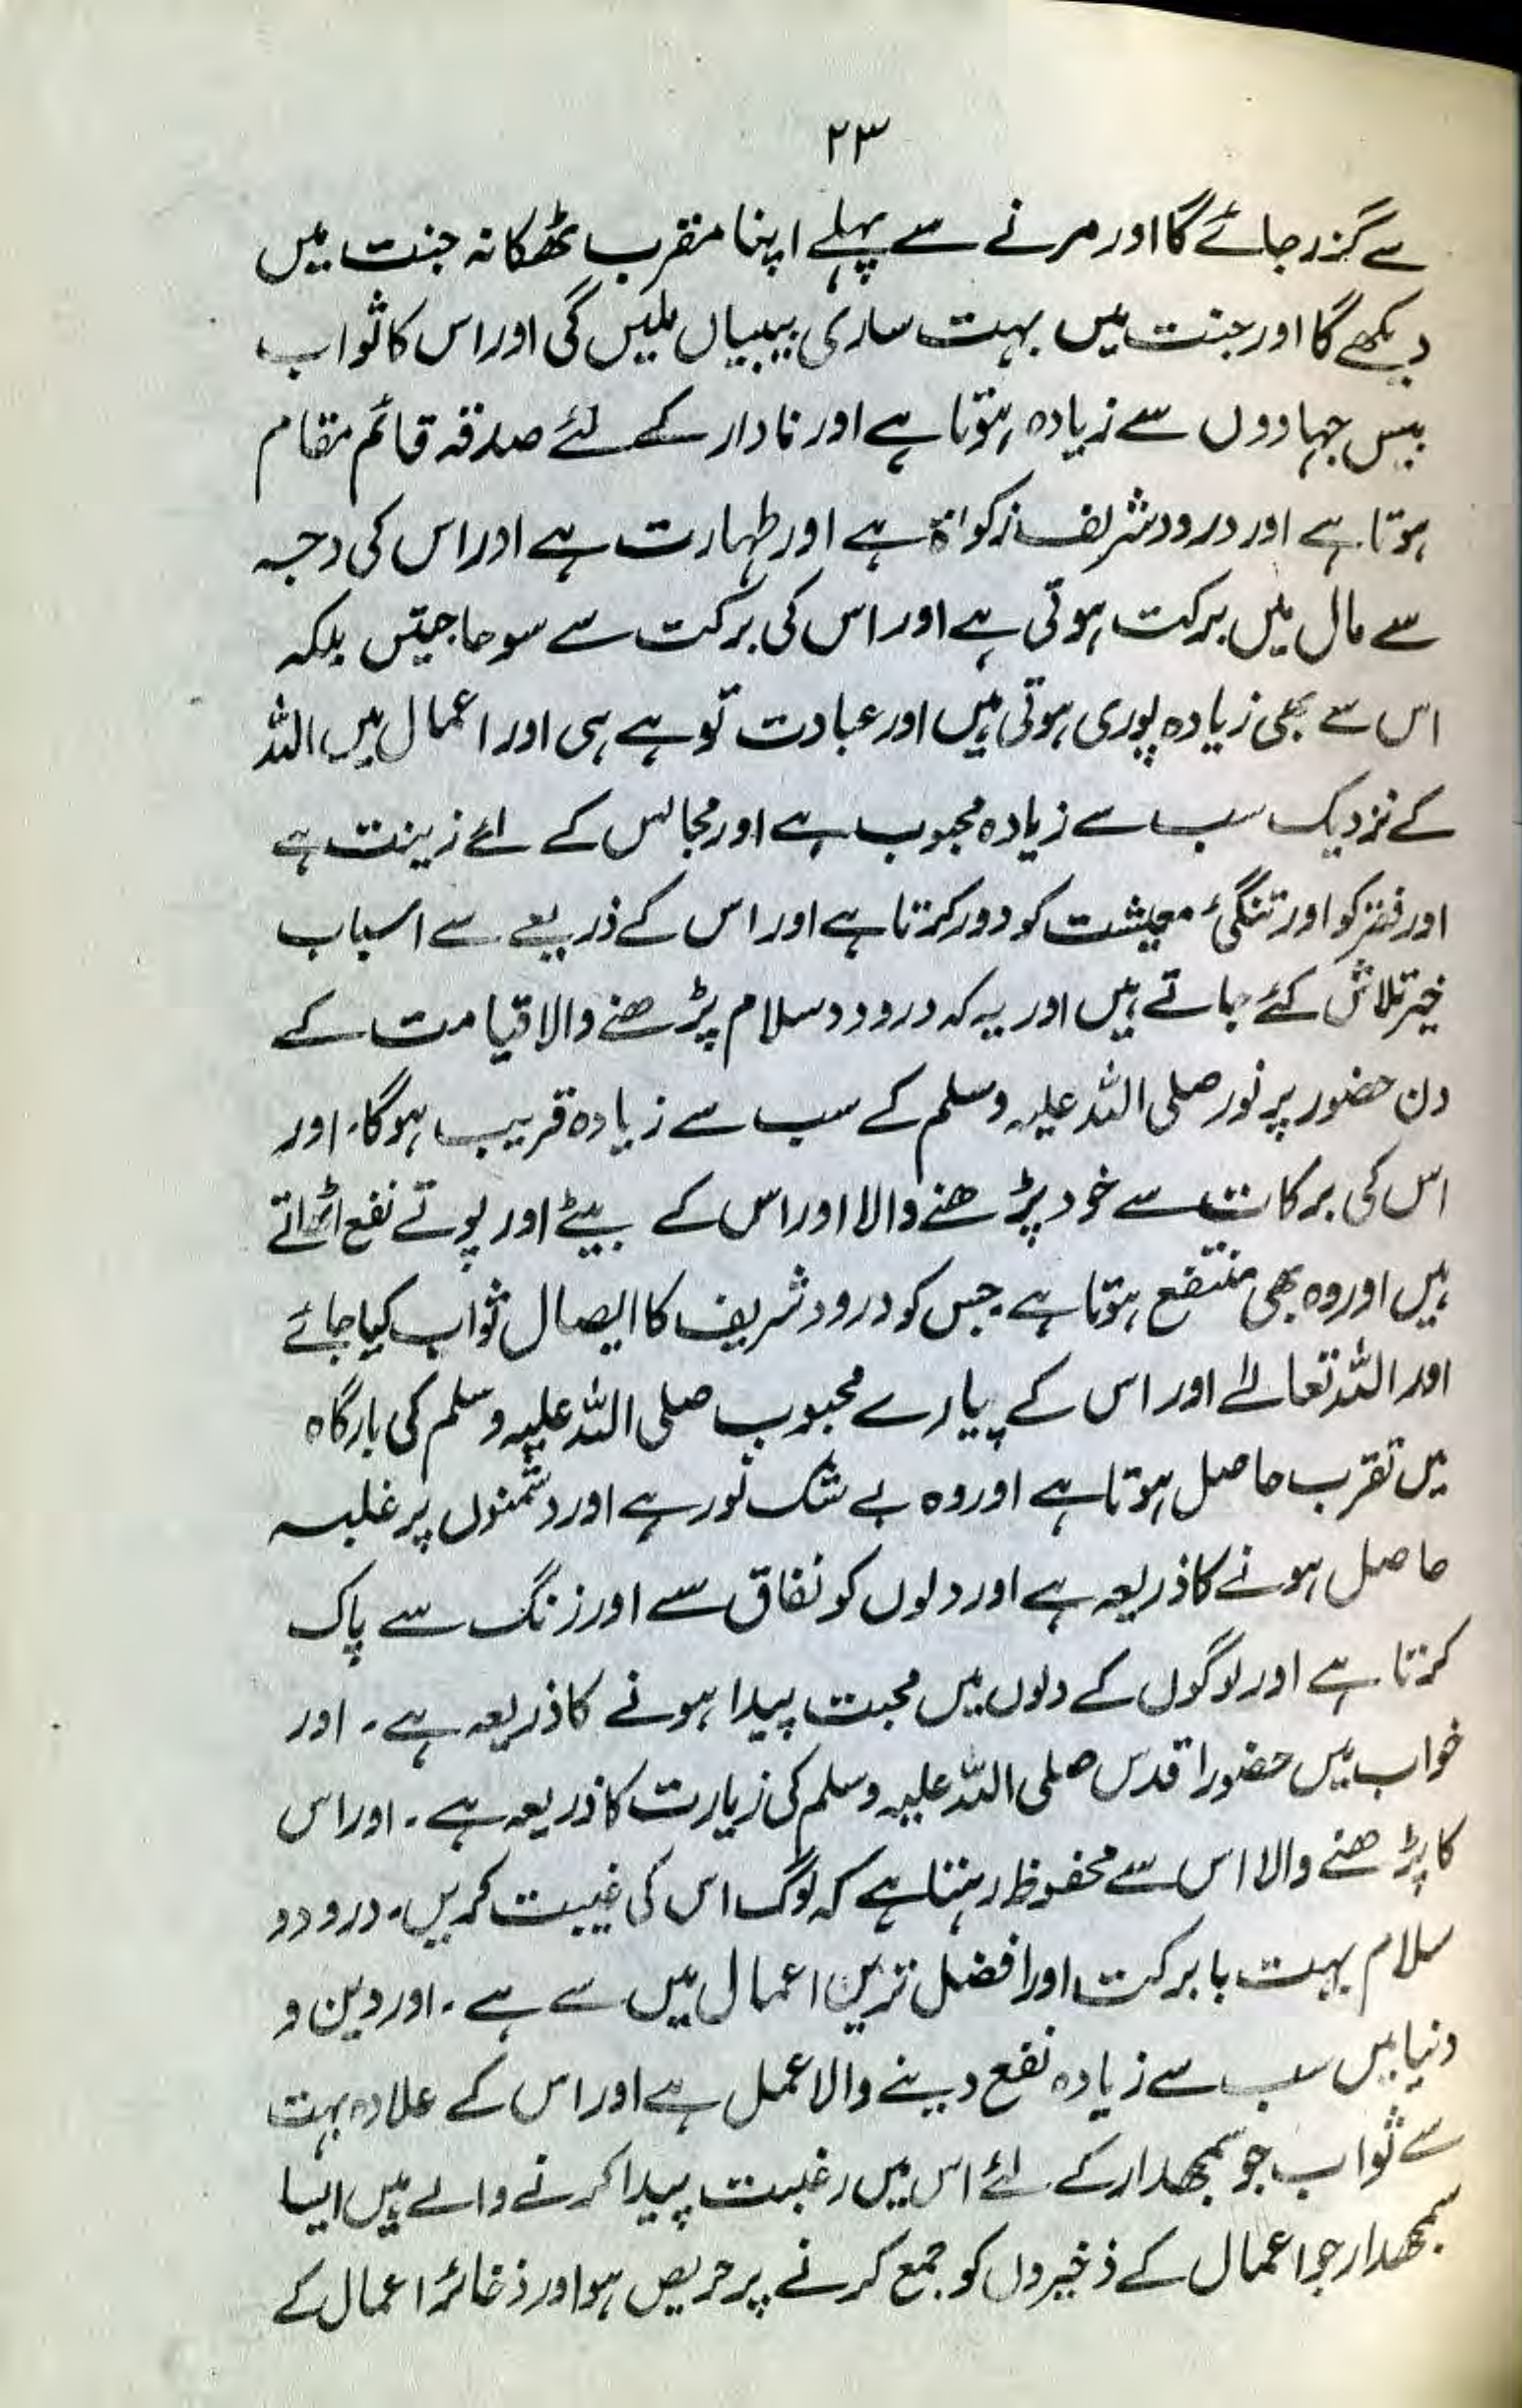 ۲۳
سے گزر جائے گا اور مرنے سے پہلے اپنا مقرب ٹھکانہ جنت میں
دیکھے گا اور جنت میں بہت ساری بیبیاں ملیں گی اور اس کا ثواب
بیس جہادوں سے زیادہ ہوتا ہے اور نادار کے لئے صدقہ قائم مقام
ہوتا ہے اور درود شریف زکواۃ ہے اور طہارت ہے اور اس کی وجہ
سے مال میں برکت ہوتی ہے اور اس کی برکت سے سو حاجتیں بلکہ
اس سے بھی زیادہ پوری ہوتی ہیں اور عبادت تو ہے ہی اور اعمال میں اللہ
کے نزدیک سب سے زیادہ محبوب ہے اور مجالس کے لئے زینت ہے
اور فقر کو اور تنگئ معیشت کو دور کرتا ہے اور اس کے ذریعے سے اسباب
خیر تلاش کئے جاتے ہیں اور یہ کہ درود و سلام پڑھنے والا قیامت کے
دن حضور پر نور صلی اللہ علیہ وسلم کے سب سے زیادہ قریب ہوگا۔ اور
اس کی برکات سے خود پڑھنے والا اور اس کے بیٹے اور پوتے نفع اٹھاتے
ہیں اور وہ بھی منتفع ہوتا ہے۔ جس کو درود شریف کا ایصال ثواب کیا جائے
اور اللہ تعالےٰ اور اس کے پیارے محبوب صلی اللہ علیہ وسلم کی بارگاہ
میں تقرب حاصل ہوتا ہے اور وہ بے شک نور ہے اور دشمنوں پر غلبہ
حاصل ہونے کا ذریعہ ہے اور دلوں کو نفاق سے اور زنگ سے پاک
کرتا ہے اور لوگوں کے دلوں میں محبت پیدا ہونے کا ذریعہ ہے۔ اور
خواب میں حضور اقدس صلی اللہ علیہ وسلم کی زیارت کا ذریعہ ہے۔ اور اس
کا پڑھنے والا اس سے محفوظ رہتا ہے کہ لوگ اس کی غیبت کریں۔ درود و
سلام بہت بابرکت اور افضل ترین اعمال میں سے ہے۔ اور دین و
دنیا میں سب سے زیادہ نفع دینے والا عمل ہے اور اس کے علاوہ بہت
سے ثواب جو سمجھدار کے لئے اس میں رغبت پیدا کرنے والے ہیں ایسا
سمجھدار جو اعمال کے ذخیروں کو جمع کرنے پر حریص ہو اور ذخائر اعمال کے